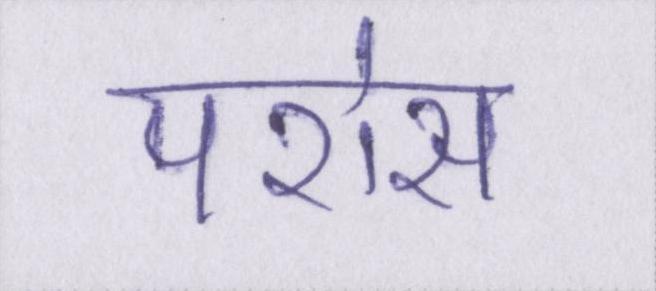 परांस